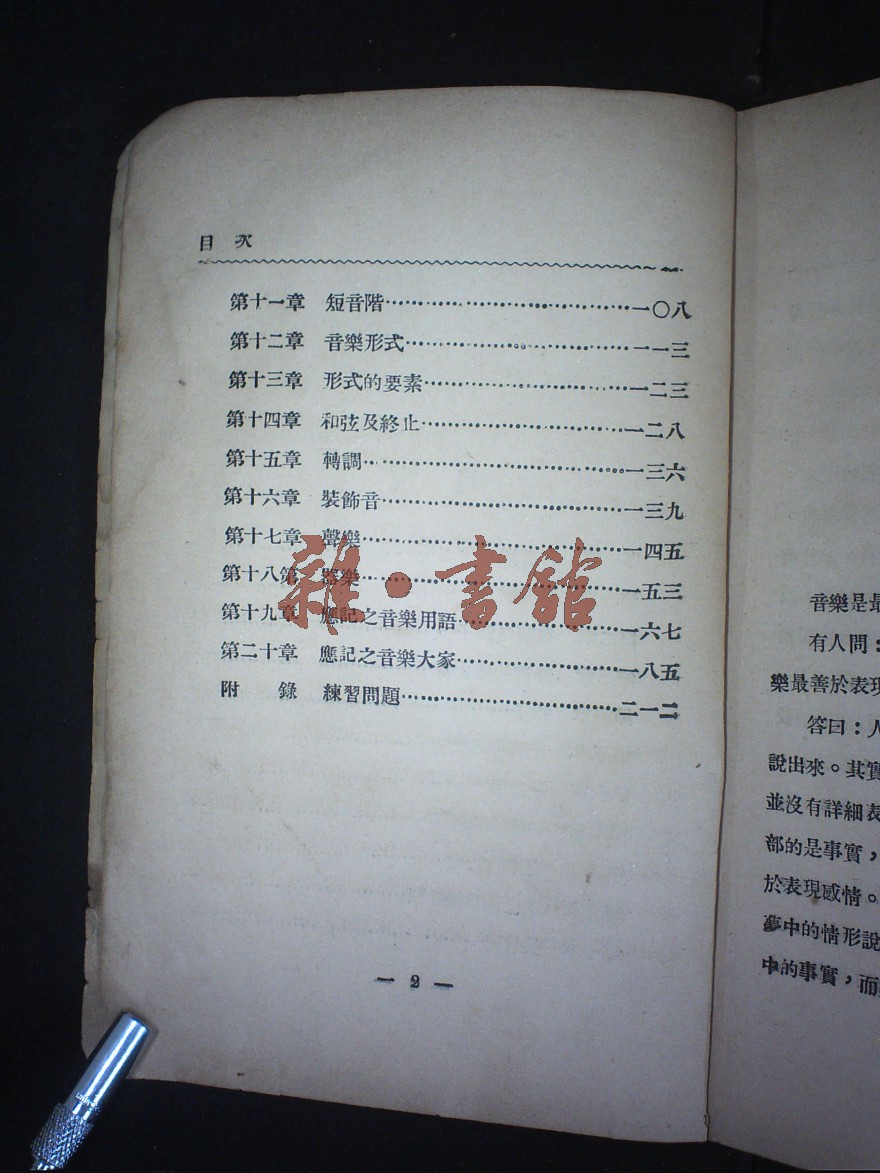 目 次
第十一章 短音階……………………………一〇八
第十二章 音樂形式…………………………一一三
第十三章 形式的要素………………………一二三
第十四章 和弦及終止………………………一二八
第十五章 轉調………………………………一三六
第十六章 裝飾音……………………………一三九
第十七章 聲樂………………………………一四五
第十八第 器樂………………………………一五三
第十九章 應記之音樂用語…………………一六七
第二十章 應記之音樂大家…………………一八五
附 錄 練習問題…………………………二一二
— 2 —
雜·書館
音樂是最
有人問：
樂最善於表現
答曰：人
說出來。其實
並沒有詳細表
部的是事實，
於表現感情。
夢中的情形說
中的事實，而